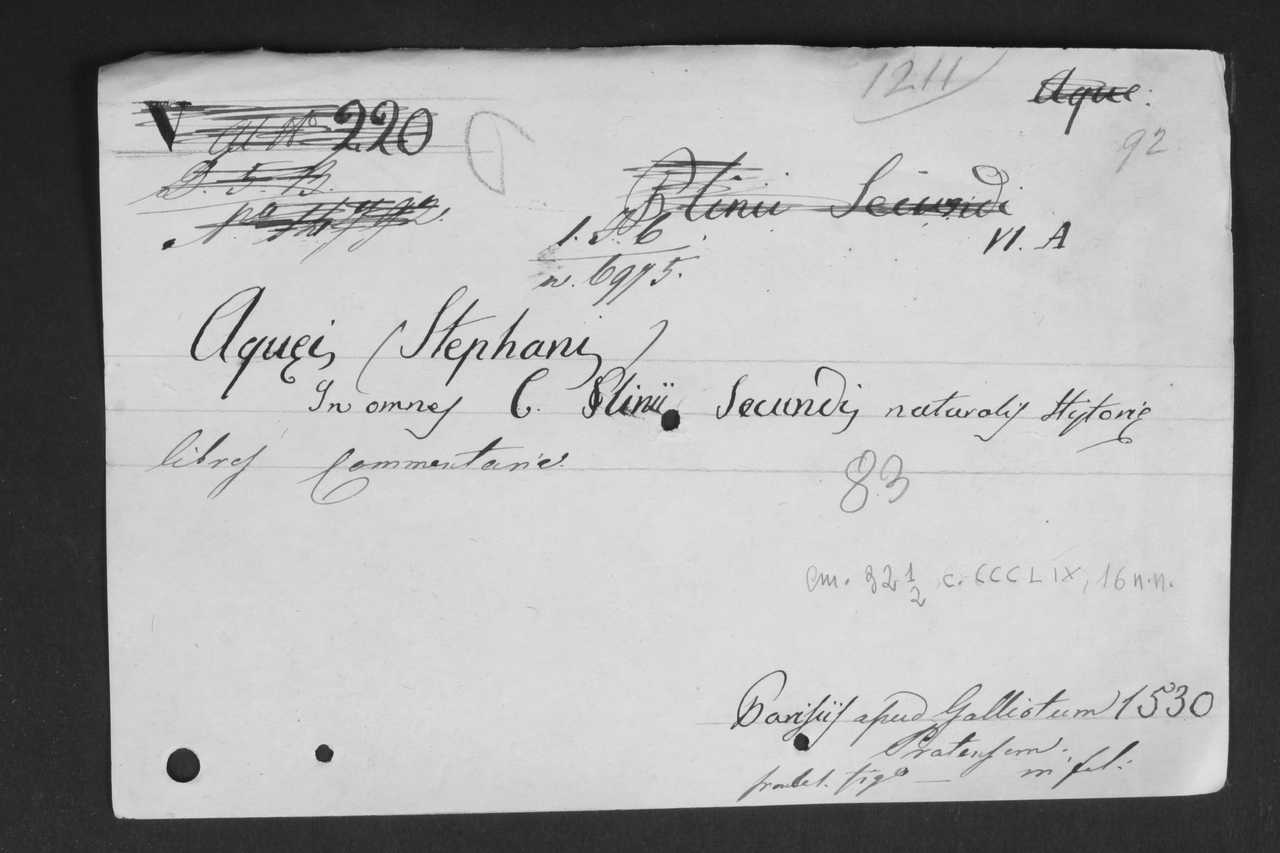 1211
Aque.
V 220
92
3. 5. B.
Plinii Secundi
1. S. 6.
VI. A
n. 6975.
Aquęi (Stephani)
In omnes C. Plinii Secundi naturalis Hystorię
libros Commentaria.
83
cm. 32 1/2 c. CCCLIX, 16 n.n.
Parisiis apud Galliotum 1530
Pratensem.
in fol: